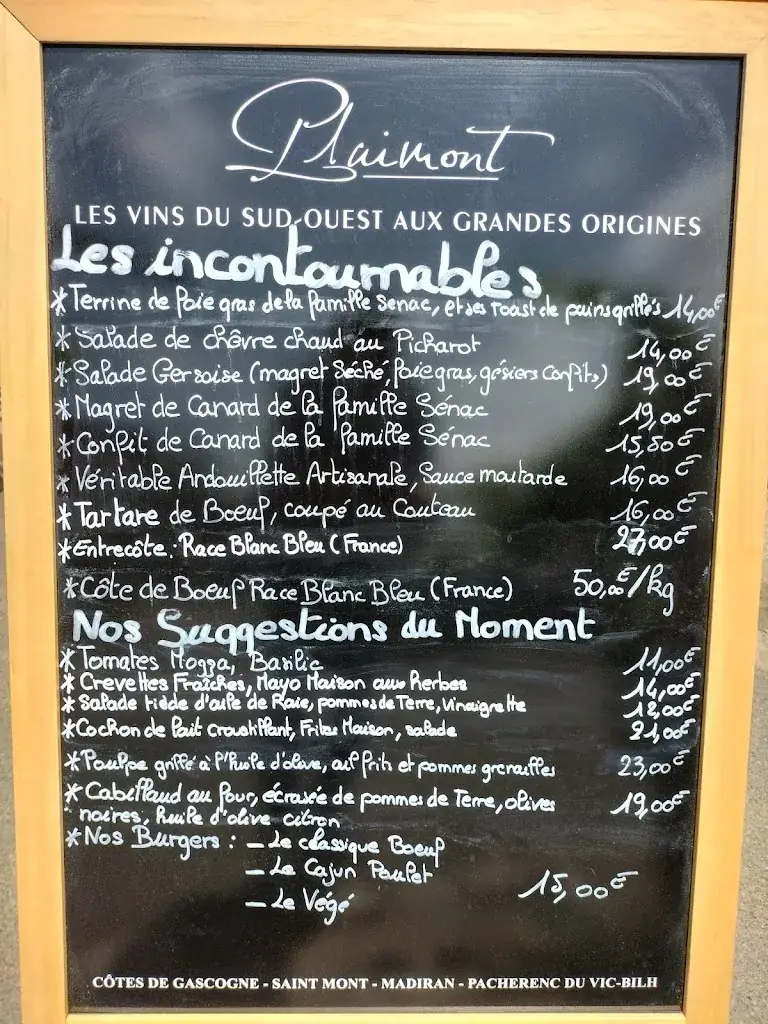 Plaimont
LES VINS DU SUD-OUEST AUX GRANDES ORIGINES
Les incontournables
* Terrine de foie gras de la famille Senac, et ses roast de pains grillés 14,00€
* Salade de chêvre chaud au Picharot 14,00€
* Salade Gersoise (magret séché, foie gras, gésiers confits) 19,00€
* Magret de Canard de la famille Sénac 19,00€
* Confit de Canard de la famille Sénac 15,50€
* Véritable Andouillette Artisanale, Sauce moutarde 16,00€
* Tartare de Boeuf, coupé au Couteau 16,00€
* Entrecôte : Race Blanc Bleu (France) 27,00€
* Côte de Boeuf Race Blanc Bleu (France) 50,00€/kg
Nos Suggestions du Moment
* Tomates Mozza, Basilic 11,00€
* Crevettes Fraîches, Mayo Maison aux herbes 14,00€
* Salade tiède d'aile de Raie, pommes de Terre, Vinaigrette 18,00€
* Cochon de lait croustillant, Frites Maison, salade 21,00€
* Poulpe grillé à l'huile d'olive, ail frits et pommes grenailles 23,00€
* Cabillaud au four, écrasée de pommes de Terre, olives 19,00€
noires, huile d'olive citron
* Nos Burgers : – Le classique Boeuf
– Le Cajun Poulet 15,00€
– Le Végé
CÔTES DE GASCOGNE - SAINT MONT - MADIRAN - PACHERENC DU VIC-BILH